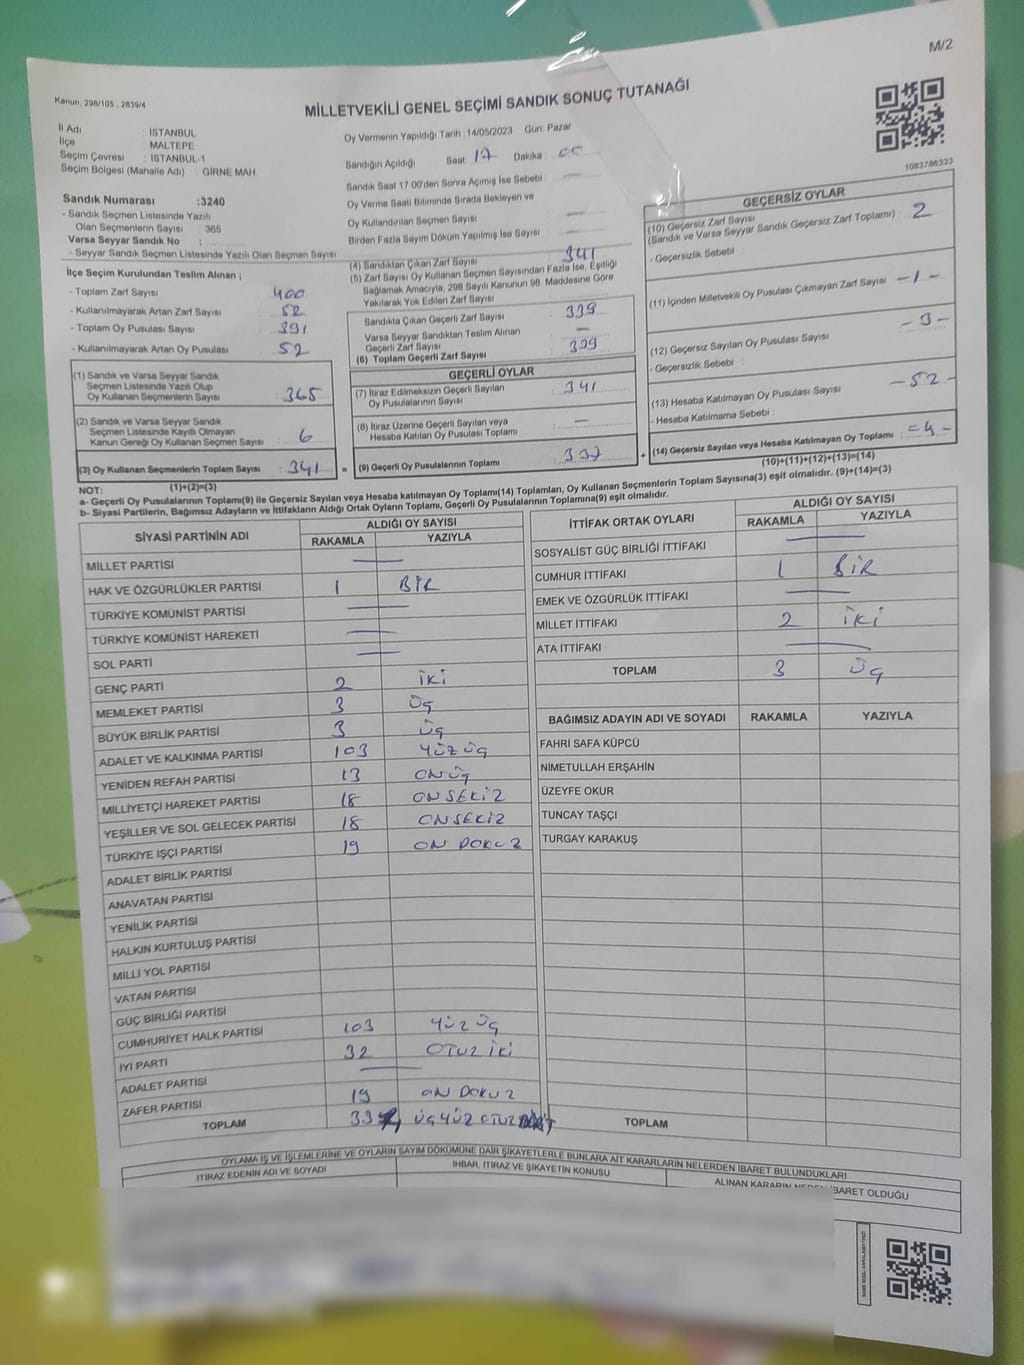 M/2
Kanun; 298/105 , 2839/4
MİLLETVEKİLİ GENEL SEÇİMİ SANDIK SONUÇ TUTANAĞI
İl Adı : İSTANBUL
İlçe : MALTEPE
Seçim Çevresi : İSTANBUL-1
Seçim Bölgesi (Mahalle Adı) : GİRNE MAH.
Oy Vermenin Yapıldığı Tarih :14/05/2023 Gün: Pazar
Sandığın Açıldığı Saat : 17 Dakika : 00
Sandık Saat 17.00'den Sonra Açımış İse Sebebi : —
Oy Verme Saati Bitiminde Sırada Bekleyen ve
Oy Kullandırılan Seçmen Sayısı : —
Birden Fazla Sayım Döküm Yapılmış İse Sayısı : —
1083766333
Sandık Numarası :3240
- Sandık Seçmen Listesinde Yazılı
Olan Seçmenlerin Sayısı : 365
Varsa Seyyar Sandık No :
- Seyyar Sandık Seçmen Listesinde Yazılı Olan Seçmen Sayısı
İlçe Seçim Kurulundan Teslim Alınan ;
- Toplam Zarf Sayısı : 400
- Kullanılmayarak Artan Zarf Sayısı : 52
- Toplam Oy Pusulası Sayısı : 391
- Kullanılmayarak Artan Oy Pusulası : 52
(1) Sandık ve Varsa Seyyar Sandık
Seçmen Listesinde Yazılı Olup
Oy Kullanan Seçmenlerin Sayısı : 365
(2) Sandık ve Varsa Seyyar Sandık
Seçmen Listesinde Kayıtlı Olmayan
Kanun Gereği Oy Kullanan Seçmen Sayısı : 6
(3) Oy Kullanan Seçmenlerin Toplam Sayısı : 341
(1)+(2)=(3)
(4) Sandıktan Çıkan Zarf Sayısı : 341
(5) Zarf Sayısı Oy Kullanan Seçmen Sayısından Fazla İse, Eşitliği
Sağlamak Amacıyla, 298 Sayılı Kanunun 98. Maddesine Göre
Yakılarak Yok Edilen Zarf Sayısı :
Sandıkta Çıkan Geçerli Zarf Sayısı : 339
Varsa Seyyar Sandıktan Teslim Alınan
Geçerli Zarf Sayısı : —
(6) Toplam Geçerli Zarf Sayısı : 339
GEÇERLİ OYLAR
(7) İtiraz Edilmeksizin Geçerli Sayılan
Oy Pusulalarının Sayısı : 341
(8) İtiraz Üzerine Geçerli Sayılan veya
Hesaba Katılan Oy Pusulası Toplamı : —
= (9) Geçerli Oy Pusulalarının Toplamı : 337
GEÇERSİZ OYLAR
(10) Geçersiz Zarf Sayısı
(Sandık ve Varsa Seyyar Sandık Geçersiz Zarf Toplamı) : 2
- Geçersizlik Sebebi :
(11) İçinden Milletvekili Oy Pusulası Çıkmayan Zarf Sayısı -1-
(12) Geçersiz Sayılan Oy Pusulası Sayısı -3-
- Geçersizlik Sebebi :
(13) Hesaba Katılmayan Oy Pusulası Sayısı -52-
- Hesaba Katılmama Sebebi :
+ (14) Geçersiz Sayılan veya Hesaba Katılmayan Oy Toplamı : -4-
(10)+(11)+(12)+(13)=(14)
NOT:
a- Geçerli Oy Pusulalarının Toplamı(9) ile Geçersiz Sayılan veya Hesaba katılmayan Oy Toplamı(14) Toplamları, Oy Kullanan Seçmenlerin Toplam Sayısına(3) eşit olmalıdır. (9)+(14)=(3)
b- Siyasi Partilerin, Bağımsız Adayların ve İttifakların Aldığı Ortak Oyların Toplamı, Geçerli Oy Pusulalarının Toplamına(9) eşit olmalıdır.
SİYASİ PARTİNİN ADI ALDIĞI OY SAYISI
RAKAMLA YAZIYLA
MİLLET PARTİSİ —
HAK VE ÖZGÜRLÜKLER PARTİSİ 1 BİR
TÜRKİYE KOMÜNİST PARTİSİ —
TÜRKİYE KOMÜNİST HAREKETİ —
SOL PARTİ —
GENÇ PARTİ 2 İKİ
MEMLEKET PARTİSİ 3 ÜÇ
BÜYÜK BİRLİK PARTİSİ 3 ÜÇ
ADALET VE KALKINMA PARTİSİ 103 YÜZ ÜÇ
YENİDEN REFAH PARTİSİ 13 ONÜÇ
MİLLİYETÇİ HAREKET PARTİSİ 18 ONSEKİZ
YEŞİLLER VE SOL GELECEK PARTİSİ 18 ONSEKİZ
TÜRKİYE İŞÇİ PARTİSİ 19 ON DOKUZ
ADALET BİRLİK PARTİSİ
ANAVATAN PARTİSİ
YENİLİK PARTİSİ
HALKIN KURTULUŞ PARTİSİ
MİLLİ YOL PARTİSİ
VATAN PARTİSİ
GÜÇ BİRLİĞİ PARTİSİ
CUMHURİYET HALK PARTİSİ 103 YÜZ ÜÇ
İYİ PARTİ 32 OTUZ İKİ
ADALET PARTİSİ —
ZAFER PARTİSİ 19 ON DOKUZ
TOPLAM ÜÇ YÜZ OTUZ
İTTİFAK ORTAK OYLARI ALDIĞI OY SAYISI
RAKAMLA YAZIYLA
SOSYALİST GÜÇ BİRLİĞİ İTTİFAKI —
CUMHUR İTTİFAKI 1 BİR
EMEK VE ÖZGÜRLÜK İTTİFAKI —
MİLLET İTTİFAKI 2 İKİ
ATA İTTİFAKI —
TOPLAM 3 ÜÇ
BAĞIMSIZ ADAYIN ADI VE SOYADI RAKAMLA YAZIYLA
FAHRİ SAFA KÜPCÜ
NİMETULLAH ERŞAHİN
ÜZEYFE OKUR
TUNCAY TAŞÇI
TURGAY KARAKUŞ
TOPLAM
OYLAMA İŞ VE İŞLEMLERİNE VE OYLARIN SAYIM DÖKÜMÜNE DAİR ŞİKAYETLERLE BUNLARA AİT KARARLARIN NELERDEN İBARET BULUNDUKLARI
İTİRAZ EDENİN ADI VE SOYADI İHBAR, İTİRAZ VE ŞİKAYETİN KONUSU ALINAN KARARIN NEDEN İBARET OLDUĞU